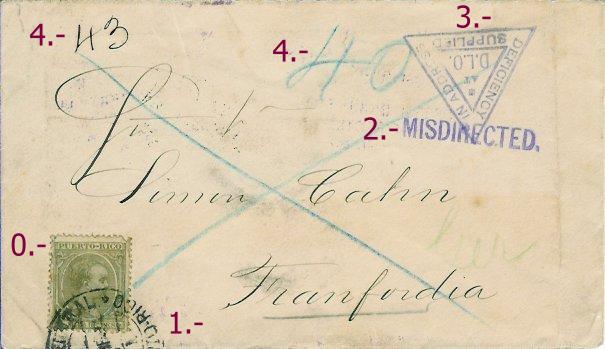 4.- 43
4.- 40
3.-
DEFICIENCY
IN ADDRESS
SUPPLIED
AT
D.L.O.
2.- MISDIRECTED.
Simon Cahn
Ger
Franfordia
0.-
PUERTO-RICO
1.-